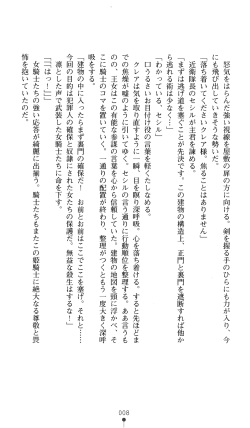 怒気をはらんだ強い視線を屋敷の扉の方に向ける。剣を握る手のひらにも力が入り、今
にも飛び出していきそうな勢いだ。
「落ち着いてくださいクレア様、焦ることはありません」
近衛隊長のセシルが主君を諌める。
「まずは逃げ道を塞ぐことが先決です。この建物の構造上、正門と裏門を遮断すれば他か
ら逃れる恐れは少なくなります」
「わかっている、セシル」
口うるさいお目付け役の言葉を軽くたしなめる。
クレアは気を取り直すように一瞬、目を閉じ深呼吸、心を落ち着ける。すると先ほどま
での焦燥が嘘のように引いてゆく。セシルの言う通りに行動順位を整理する。ああ言うも
のの、王女はこの有能な参謀の言葉を心から信頼していた。建物の地図を頭に浮かべ、そ
こに騎士のコマを置いていく。一通りの配置が終わり、整理がつくともう一度大きく深呼
吸をする。
「建物の中に入ったらまず裏門の確保だ!　お前とお前はここでここを塞げ。それと!
今回の目的は犯罪人の確保と奴隷にされた女たちの保護だ。無益な殺生はするな!」
凛とした声で武装した女騎士たちに命を下す。
「「はっ!」」
女騎士たちの強い応答が綺麗に出揃う。騎士たちもまたこの姫騎士に絶大なる尊敬と畏
怖を抱いていたのだ。
008